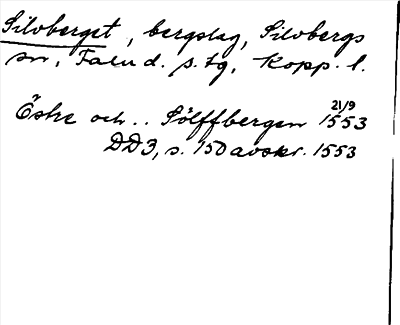 Silvberget, bergslag, Silvbergs
sn, Falu d. s. tg, Kopp. l.
Östre och .. Sölffbergen 21/9 1553
DD3, s. 150 avskr. 1553